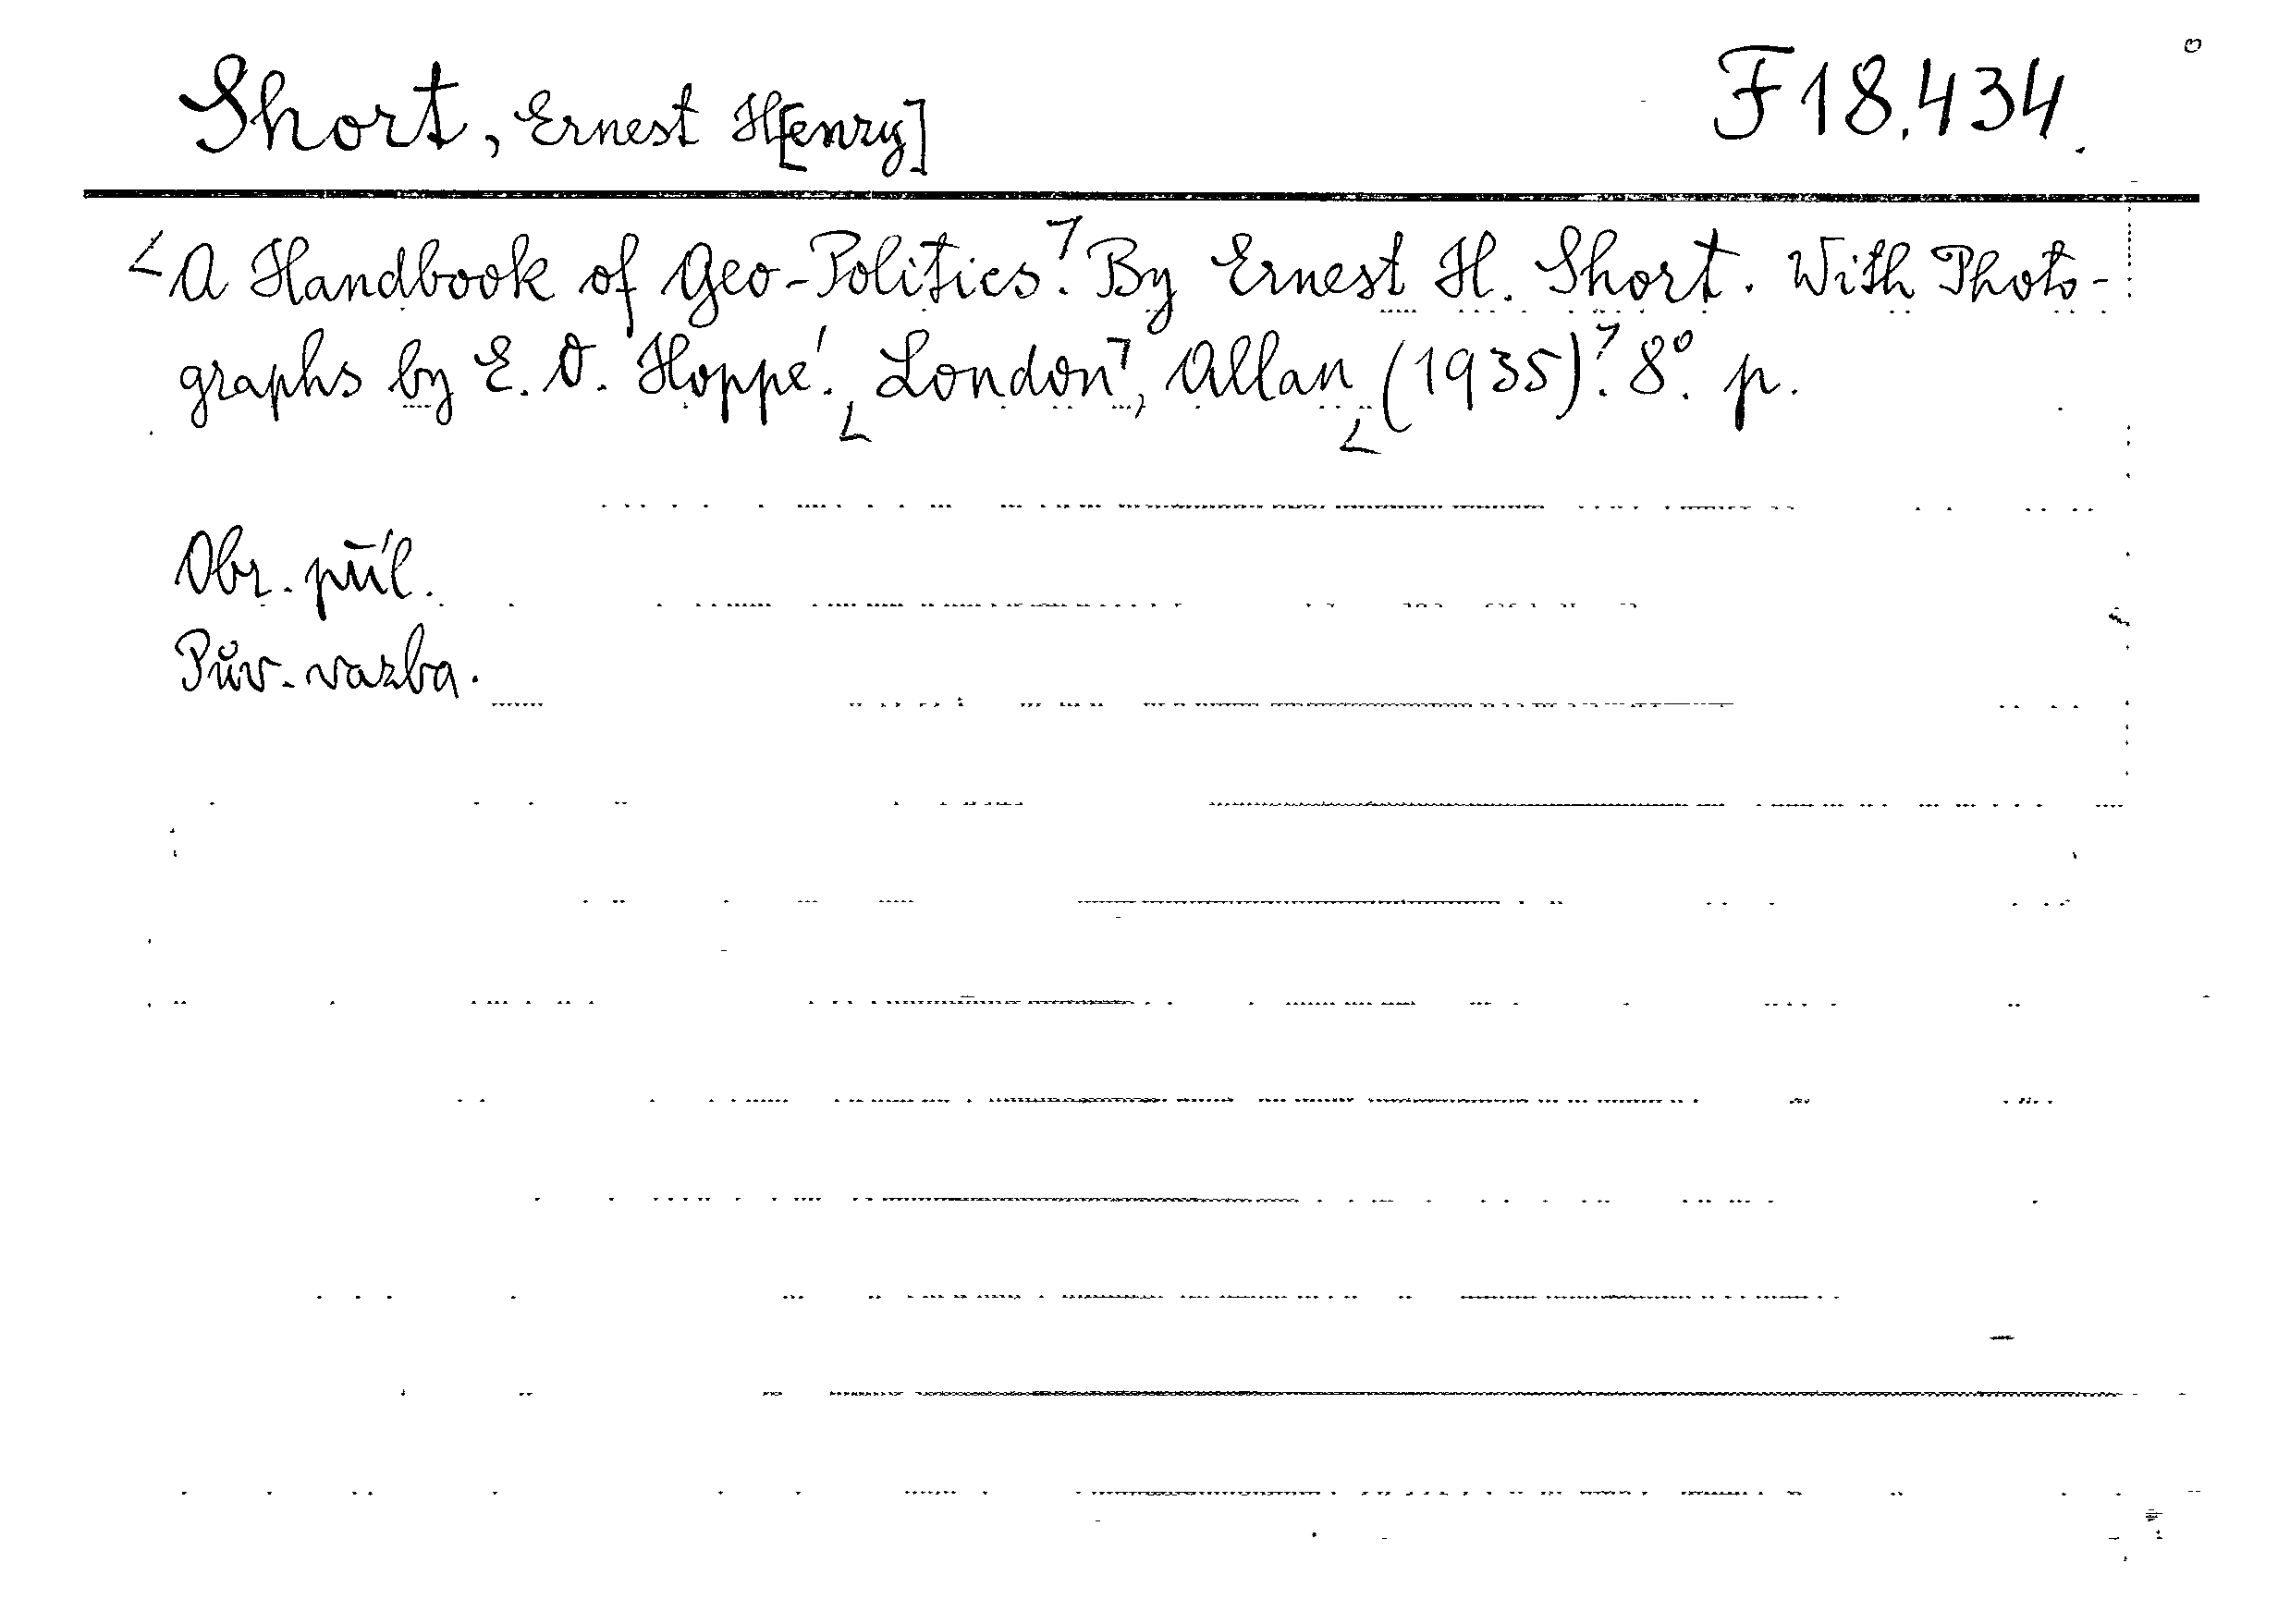 Short, Ernest H[enry] F 18.434.
<A Handbook of Geo-Politics.> By Ernest H. Short. With Photo-
graphs by E. O. Hoppé. <London>, Allan <(1935).> 8°. p.
Obr. příl.
Pův. vazba.